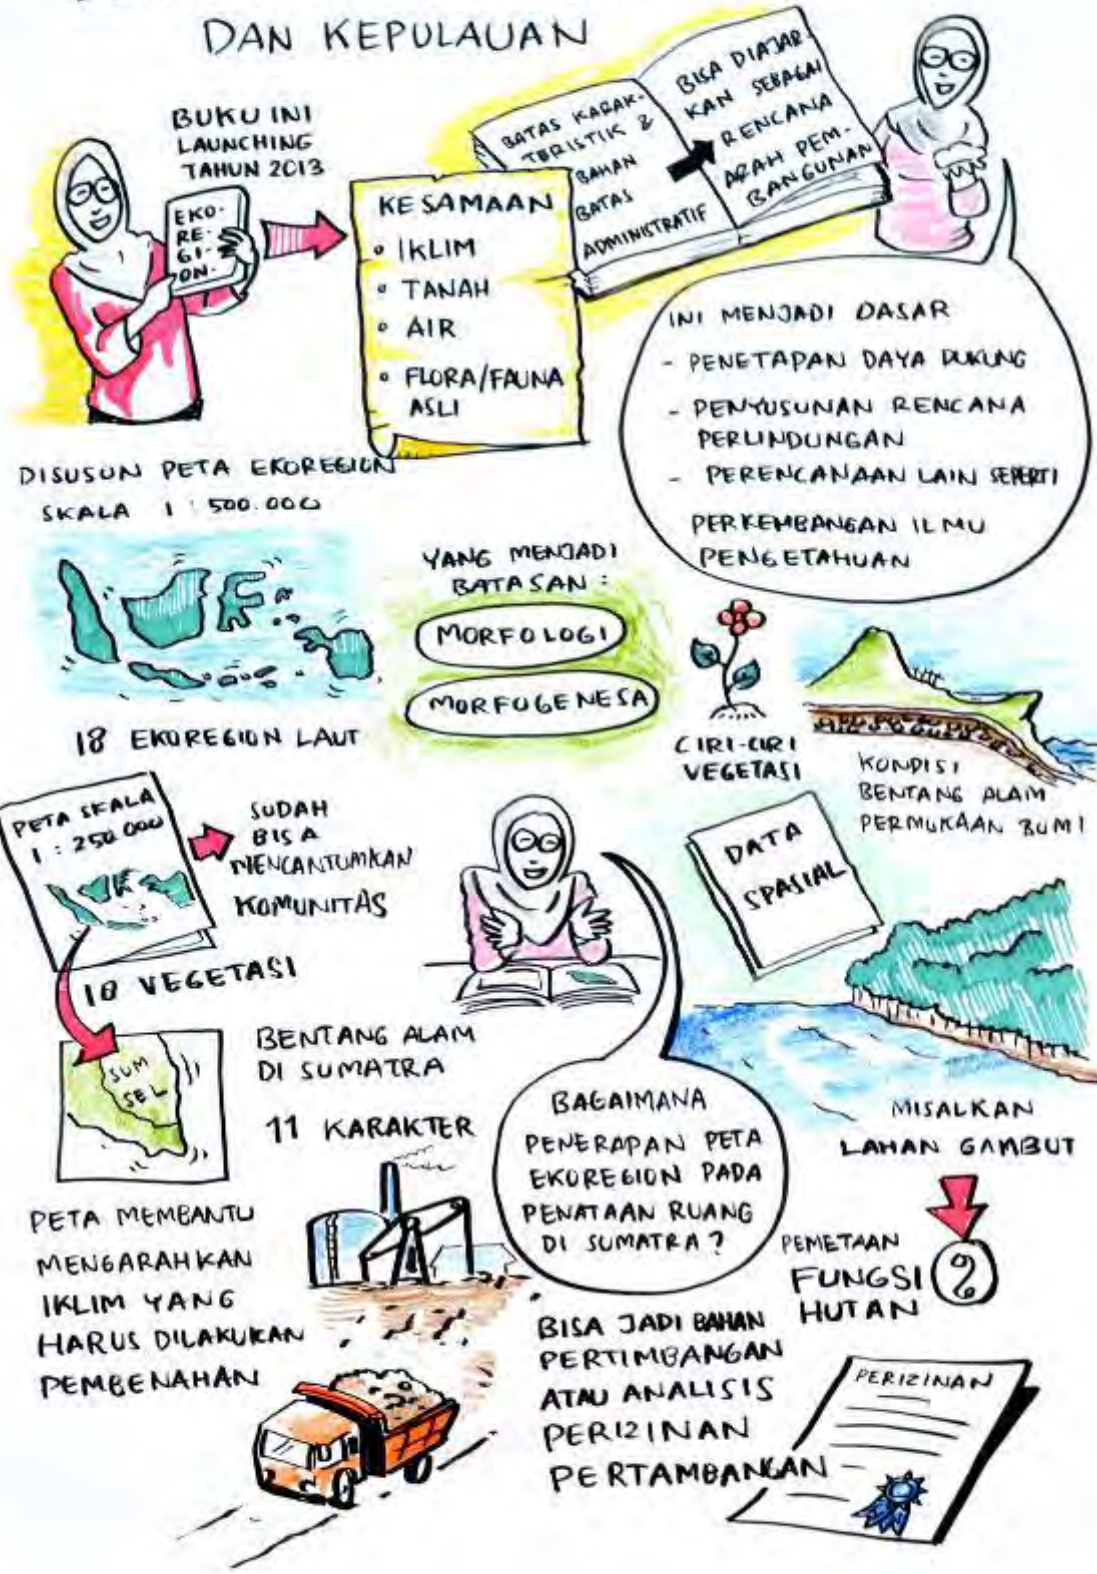 DAN KEPULAUAN
BUKU INI
LAUNCHING
TAHUN 2013
EKO-
RE-
GI-
ON-
KESAMAAN
• IKLIM
• TANAH
• AIR
• FLORA/FAUNA
ASLI
BATAS KARAK-
TERISTIK &
BAHAN
BATAS
ADMINISTRATIF
BISA DIAJAR
KAN SEBAGAI
RENCANA
ARAH PEM-
BANGUNAN
INI MENJADI DASAR
- PENETAPAN DAYA DUKUNG
- PENYUSUNAN RENCANA
PERLINDUNGAN
- PERENCANAAN LAIN SEPERTI
PERKEMBANGAN ILMU
PENGETAHUAN
DISUSUN PETA EKOREGION
SKALA 1 : 500.000
18 EKOREGION LAUT
YANG MENJADI
BATASAN :
MORFOLOGI
MORFOGENESA
CIRI-CIRI
VEGETASI
KONDISI
BENTANG ALAM
PERMUKAAN BUMI
PETA SKALA
1 : 250.000
SUDAH
BISA
MENCANTUMKAN
KOMUNITAS
18 VEGETASI
DATA
SPASIAL
SUM
SEL
BENTANG ALAM
DI SUMATRA
11 KARAKTER
BAGAIMANA
PENERAPAN PETA
EKOREGION PADA
PENATAAN RUANG
DI SUMATRA ?
MISALKAN
LAHAN GAMBUT
PEMETAAN
FUNGSI
HUTAN
?
PETA MEMBANTU
MENGARAHKAN
IKLIM YANG
HARUS DILAKUKAN
PEMBENAHAN
BISA JADI BAHAN
PERTIMBANGAN
ATAU ANALISIS
PERIZINAN
PERTAMBANGAN
PERIZINAN